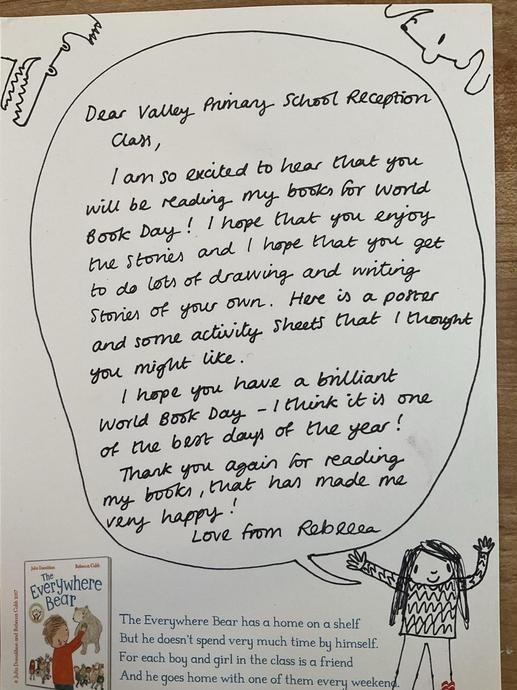 Dear Valley Primary School Reception
Class,
I am so excited to hear that you
will be reading my books for World
Book Day! I hope that you enjoy
the stories and I hope that you get
to do lots of drawing and writing
stories of your own. Here is a poster
and some activity sheets that I thought
you might like.
I hope you have a brilliant
World Book Day - I think it is one
of the best days of the year!
Thank you again for reading
my books, that has made me
very happy!
Love from Rebecca
Julia Donaldson Rebecca Cobb
The
Everywhere
Bear
© Julia Donaldson and Rebecca Cobb 2017
The Everywhere Bear has a home on a shelf
But he doesn't spend very much time by himself.
For each boy and girl in the class is a friend
And he goes home with one of them every weekend.